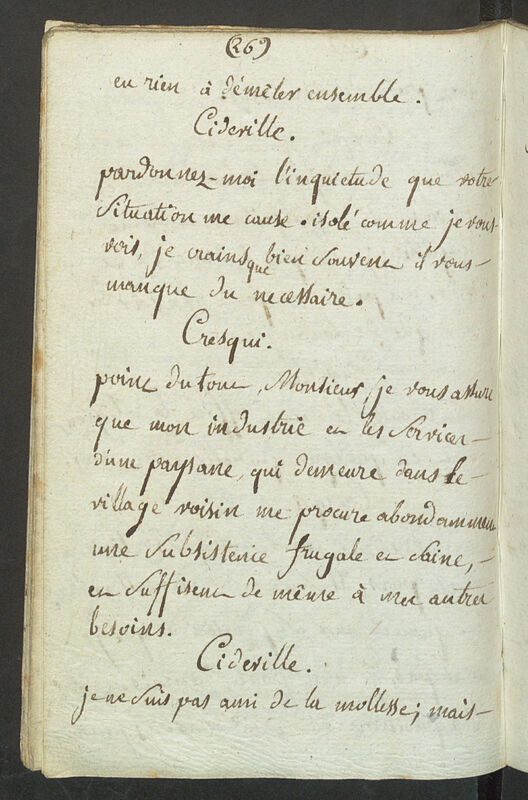 (26)
en rien à démêler ensemble.
Cideville.
pardonnez-moi l'inquietude que votre
Situation me cause. isolé comme je vous
vois, je crains que bien Souvent il vous
manque du necessaire.
Cresqui.
point du tout, Monsieur, je vous assure
que mon industrie et les Services
d'une paysane, qui demeure dans le
village voisin me procure abondamment
une Subsistence frugale et Saine,
et suffisent de même à mes autres
besoins.
Cideville.
je ne Suis pas ami de la mollesse; mais